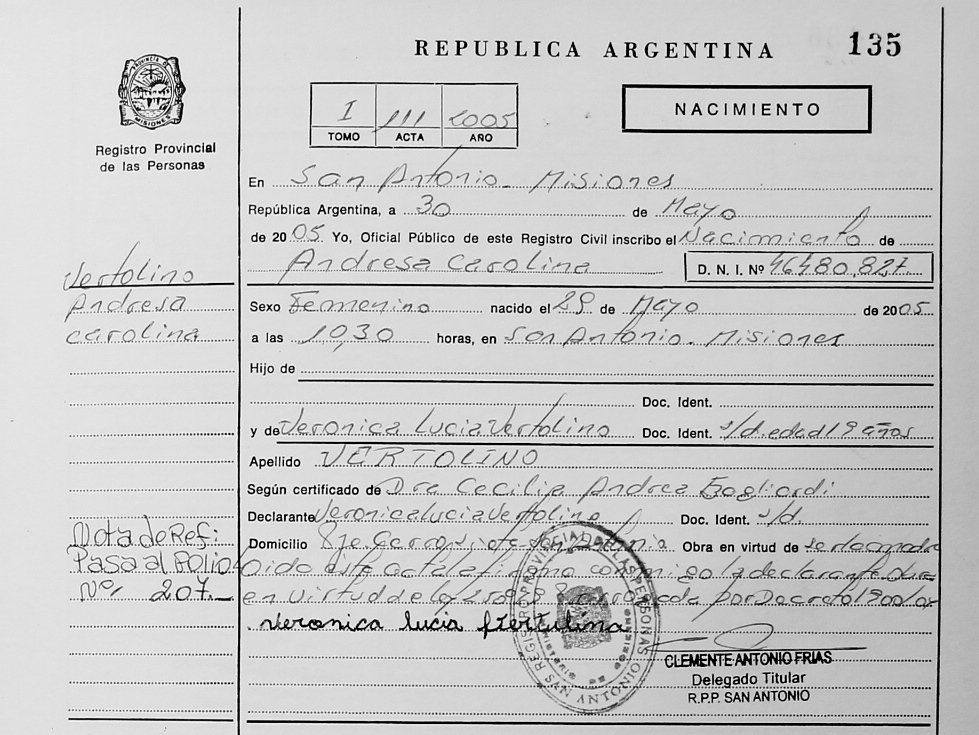 REPUBLICA ARGENTINA 135
PROVINCIA DE MISIONES
Registro Provincial
de las Personas
I 111 2005
TOMO ACTA AÑO
NACIMIENTO
En San Antonio - Misiones
República Argentina, a 30 de Mayo
de 2005 Yo, Oficial Público de este Registro Civil inscribo el Nacimiento de
Andresa Carolina D. N. I. Nº 46480.827
Vertolino
Andresa
Carolina
Sexo Femenino nacido el 29 de Mayo de 2005
a las 10,30 horas, en San Antonio - Misiones
Hijo de
Doc. Ident.
y de Veronica Lucia Vertolino Doc. Ident. s/d. edad 19 años
Apellido VERTOLINO
Según certificado de Dra Cecilia Andrea
Declarante Veronica Lucia Vertolino Doc. Ident. s/d.
Domicilio San Antonio Obra en virtud de ser la madre
Nota de Ref:
Pasa al Folio
Nº 207
este acta la firma conmigo la declarante
en virtud de por Decreto
Veronica lucia
REGISTRO PROVINCIAL DE LAS PERSONAS
MINISTERIO DE GOBIERNO
SAN ANTONIO
CLEMENTE ANTONIO FRIAS
Delegado Titular
R.P.P. SAN ANTONIO